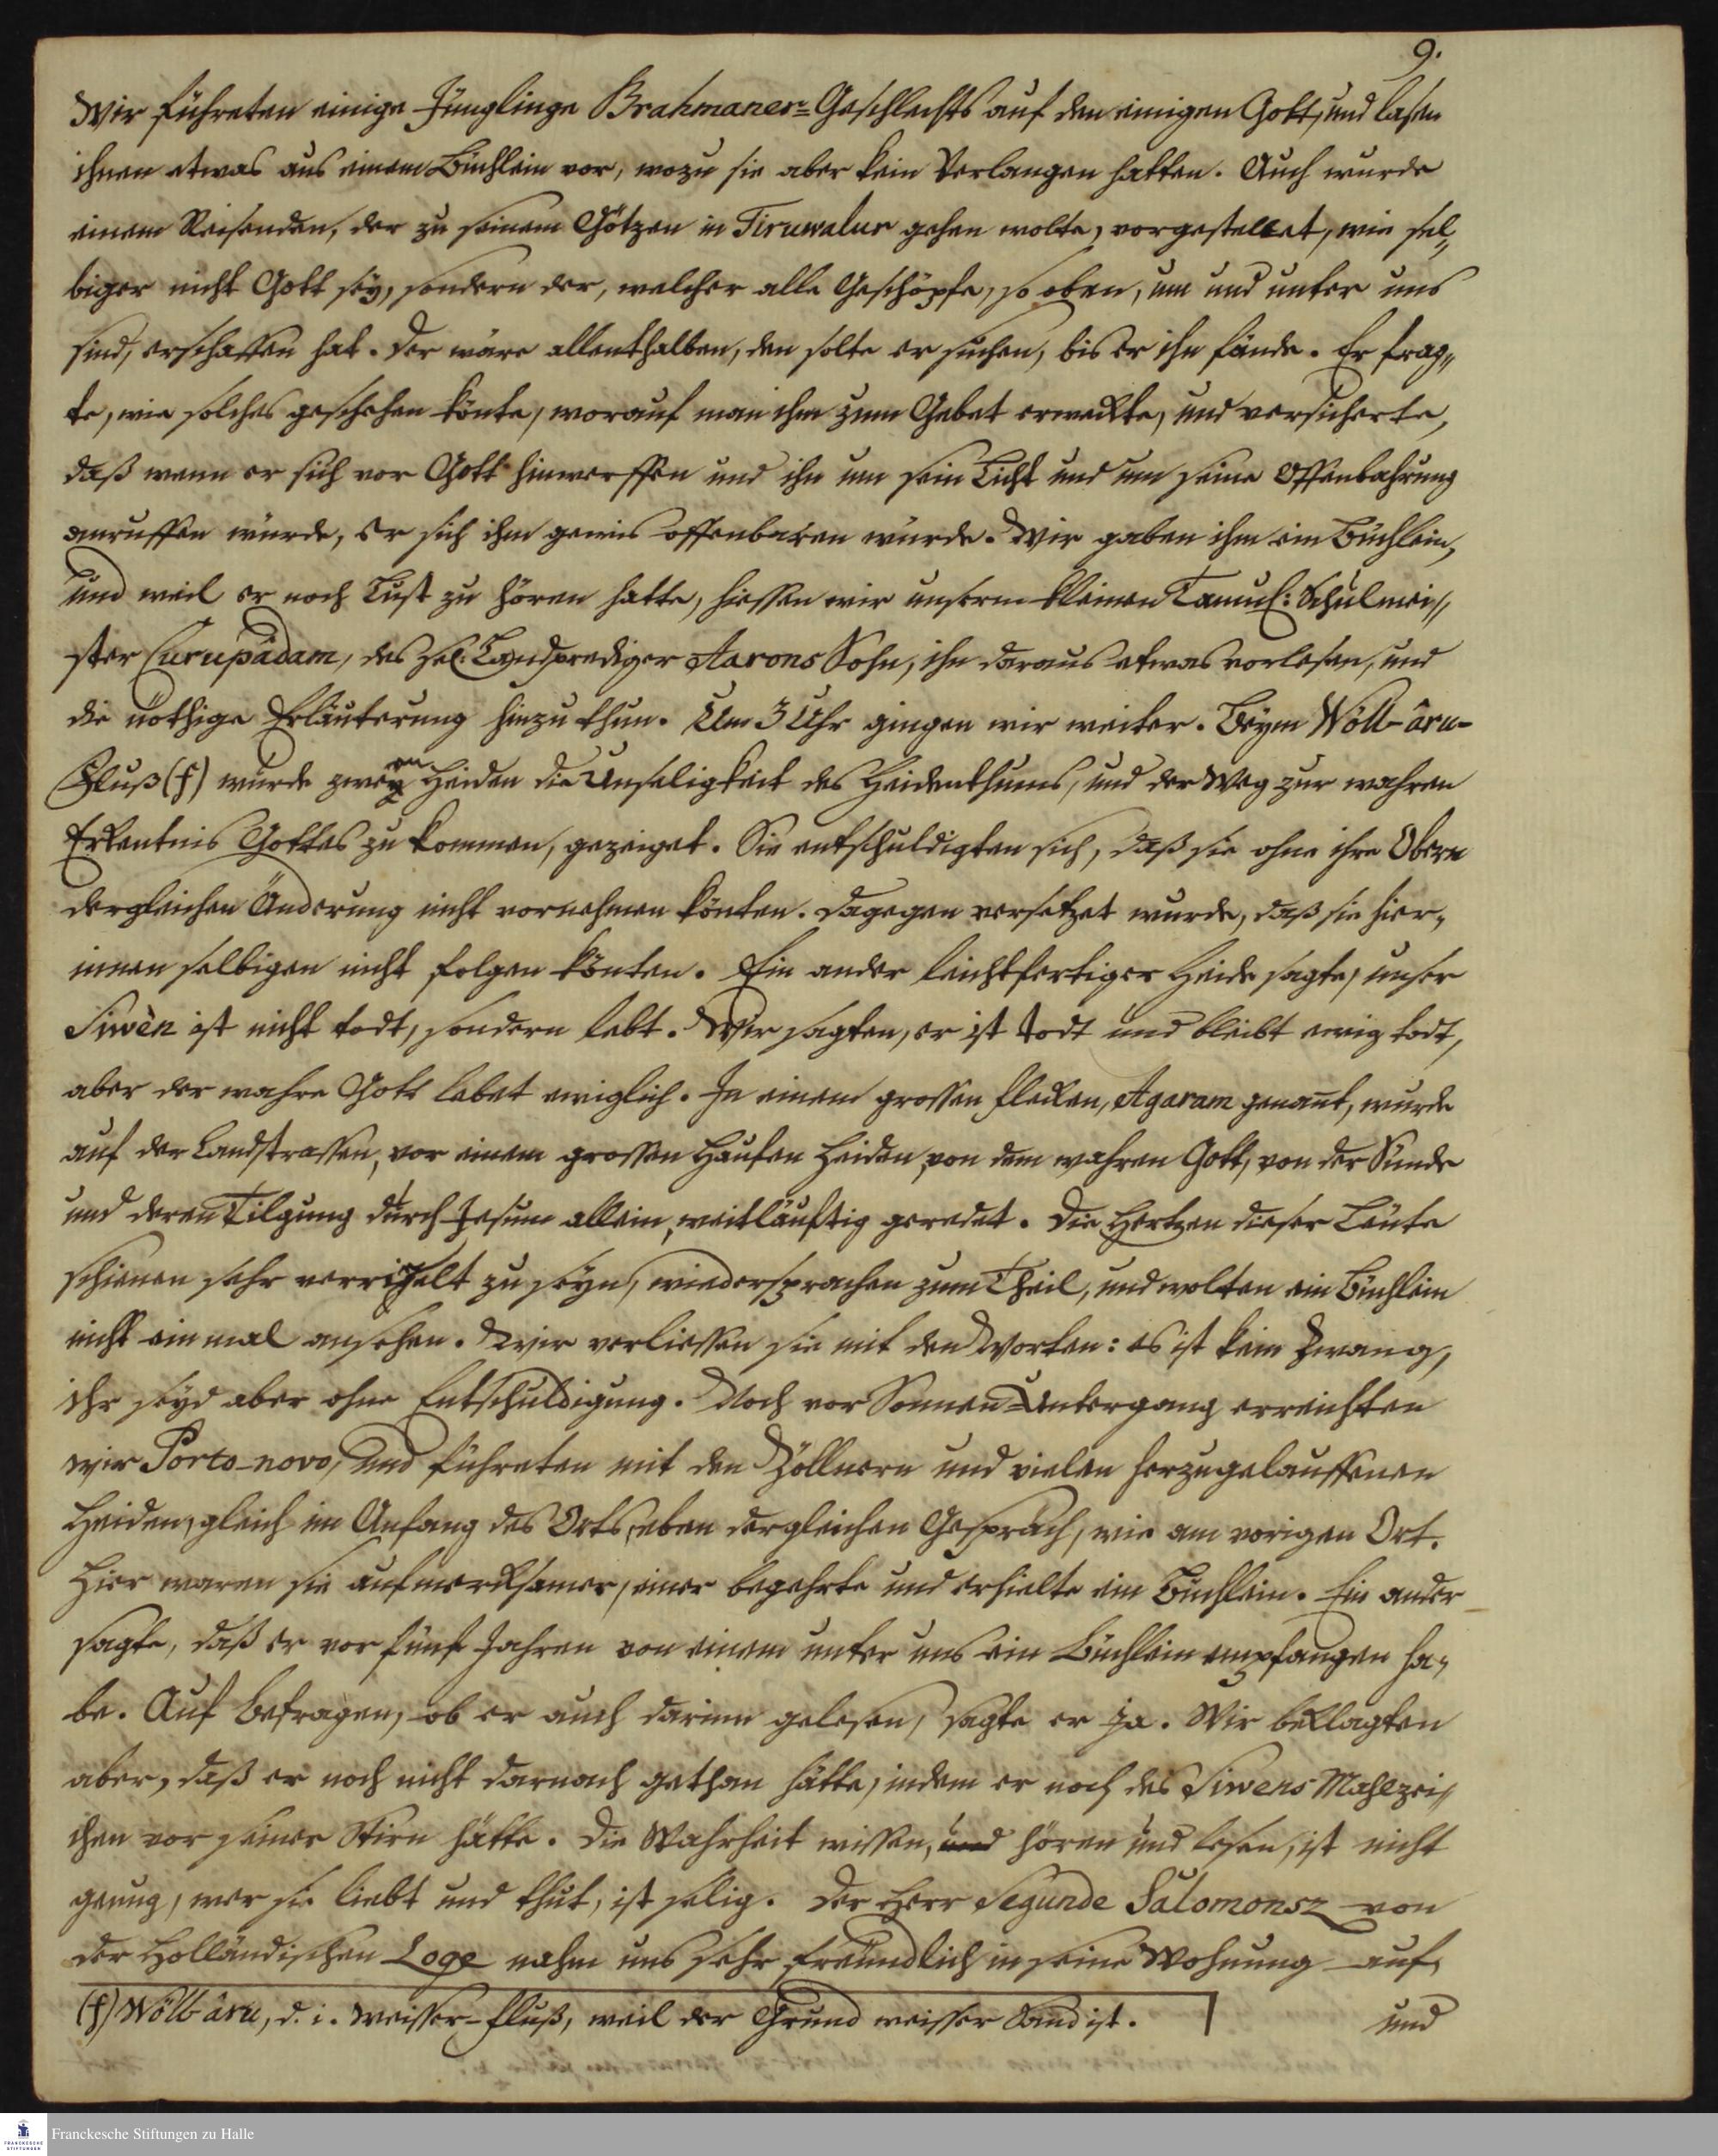 9.
Wir führeten einige Jünglinge Brahmaner-Geschlechts auf den einigen Gott, und lasen
ihnen etwas aus einem Büchlein vor, wozu sie aber kein Verlangen hatten. Auch wurde
einem Reisenden, der zu seinem Götzen in Tiruwalur gehen wolte, vorgestellet, wie sel„
biger nicht Gott sey, sondern der, welcher alle Geschöpfe, so oben, um und unter uns
sind, erschaffen hat. Der wäre allenthalben, den solte er suchen, bis er ihn fände. Er frag„
te, wie solches geschehen könte, worauf man ihn zum Gebet erweckte, und versicherte,
daß wenn er sich vor Gott hinwerffen und ihn um sein Licht und um seine Offenbahrung
anruffen würde, Er sich ihm gewis offenbaren würde. Wir gaben ihm ein Büchlein,
und weil er noch Lust zu hören hatte, hiessen wir unserm kleinen Tamul: Schulmei„
ster Curupàdam, des sel. Landprediger Aarons Sohn, ihn daraus etwas vorlesen, und
die nöthige Erläuterung hinzu thun. Um 3 Uhr gingen wir weiter. Beym Wöll-âru-
Fluß (f) wurde zweyen Heiden die Unseligkeit des Heidenthums, und der Weg zur wahren
Erkentnis Gottes zu kommen, gezeiget. Sie entschuldigten sich, daß sie ohne ihre Obern
dergleichen Änderung nicht vornehmen könten. Dagegen versetzet wurde, daß sie hier„
innen selbigen nicht folgen könten. Ein ander leichtfertiger Heide sagte, unser
Siwèn ist nicht todt, sondern lebt. Wir sagten, er ist todt und bleibt ewig todt,
aber der wahre Gott lebet ewiglich. In einem grossen Flecken, Agaram genant, wurde
auf der Landstrassen, vor einem grossen Haufen Heiden, von dem wahren Gott, von der Sünde
und deren Tilgung durch Jesum allein, weitläuftig geredet. Die Hertzen dieser Leute
schienen sehr verrigelt zu seyn, wiedersprachen zum Theil, und wolten ein Büchlein
nicht ein mal ansehen. Wir verliessen sie mit den Worten: es ist kein Zwang,
ihr seyd aber ohne Entschuldigung. Noch vor Sonnen-Untergang erreichten
wir Porto-novo, und führeten mit den Zöllnern und vielen herzugelauffenen
Heiden, gleich im Anfang des Orts, eben dergleichen Gespräch, wie am vorigen Ort.
Hier waren sie aufmerksamer, einer begehrte und erhielte ein Büchlein. Ein ander
sagte, daß er vor fünf Jahren von einem unter uns ein Büchlein empfangen ha„
be. Auf Befragen, ob er auch darinn gelesen, sagte er ja. Wir beklagten
aber, daß er noch nicht darnach gethan hätte, indem er noch des Siwens Mahlzei„
chen vor seiner Stirn hätte. Die Wahrheit wissen, und hören und lesen, ist nicht
genug, wer sie liebt und thut, ist selig. Der Herr Segunde Salomonsz von
der Holländischen Loge nahm uns sehr freundlich in seine Wohnung auf,
(f) Wöll-âru, d. i. weisser-Fluß, weil der Grund weisser Sand ist.
und
Franckesche Stiftungen zu Halle